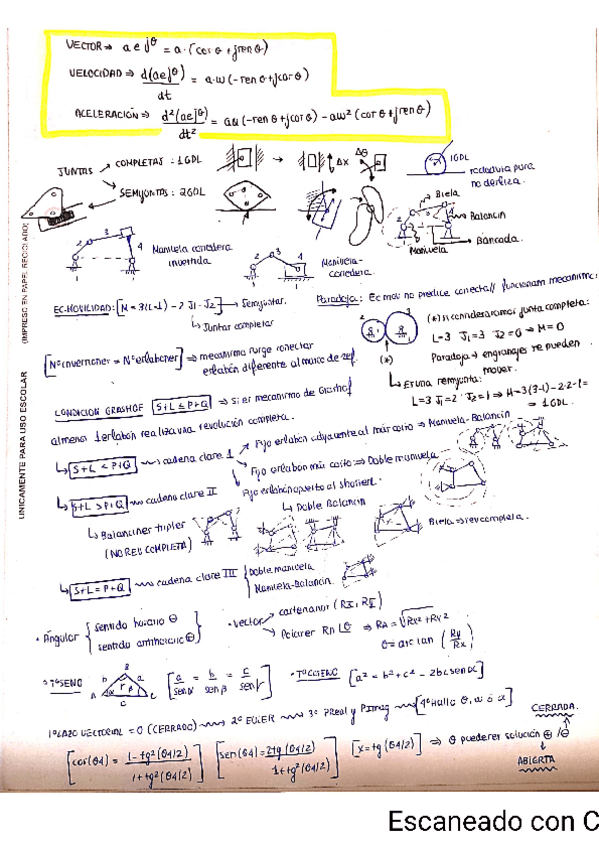 VECTOR ⇒ a e^jθ = a·(cosθ + jsenθ)
VELOCIDAD ⇒ d(ae^jθ)/dt = a·ω(-senθ + jcosθ)
ACELERACIÓN ⇒ d²(ae^jθ)/dt² = aα(-senθ + jcosθ) - aω²(cosθ + jsenθ)
JUNTAS → COMPLETAS: 1GDL → Δx Δθ 1GDL
rodadura pura
no desliza.
SEMIJUNTAS: 2GDL
Biela
Balancín
Bancada.
Manivela
2 3 4 1
Manivela corredera
invertida
Manivela-
corredera.
EC. MOVILIDAD: [M = 3(L-1) - 2J1 - J2] → Semijuntas.
↳ Juntas completas
Paradoja: Ec mov no predice
(*) si consideramos junta completa:
L=3 J1=3 J2=0 ⇒ M=0
Paradoja → engranajes se pueden
mover.
(*) ↳ Es una semijunta:
L=3 J1=2 J2=1 ⇒ M=3(3-1)-2·2-1=
= 1GDL.
[Nºinversiones = Nºeslabones] → mecanismo surge conectar
eslabón diferente al marco de ref.
CONDICIÓN GRASHOF [S+L ≤ P+Q] → Si es mecanismo de Grashof
al menos 1 eslabón realiza una revolución completa.
↳ [S+L < P+Q] cadena clase I
Fijo eslabón adyacente al más corto ⇒ Manivela-Balancín
Fijo eslabón más corto ⇒ Doble manivela
Fijo eslabón opuesto al
↳ Doble Balancín
↳ [S+L > P+Q] cadena clase II
↳ Balancines triples
(NO REV COMPLETA)
Biela ⇒ rev completa.
↳ [S+L = P+Q] cadena clase III { Doble manivela
Manivela-Balancín
• Ángulos { sentido horario ⊖
sentido antihorario ⊕ }
• Vector
Polares R∟θ ⇒ RA = √Rx²+Ry²
θ = arc tan (Ry/Rx)
• TºSENO
B b a A c C
[a/senα = b/senβ = c/senγ]
• TºCOSENO [a² = b² + c² - 2bcsenα]
1º LAZO VECTORIAL = 0 (CERRADO) 2º EULER 3º PReal y PImag [4º Hallo θ, ω ó α]
CERRADA.
[cos(θ4) = 1-tg²(θ4/2) / 1+tg²(θ4/2)] [sen(θ4) = 2tg(θ4/2) / 1+tg²(θ4/2)] [x = tg(θ4/2)] ⇒ θ puede ser solución ⊕/⊖
ABIERTA
UNICAMENTE PARA USO ESCOLAR
(IMPRESO EN PAPEL RECICLADO)
Escaneado con C